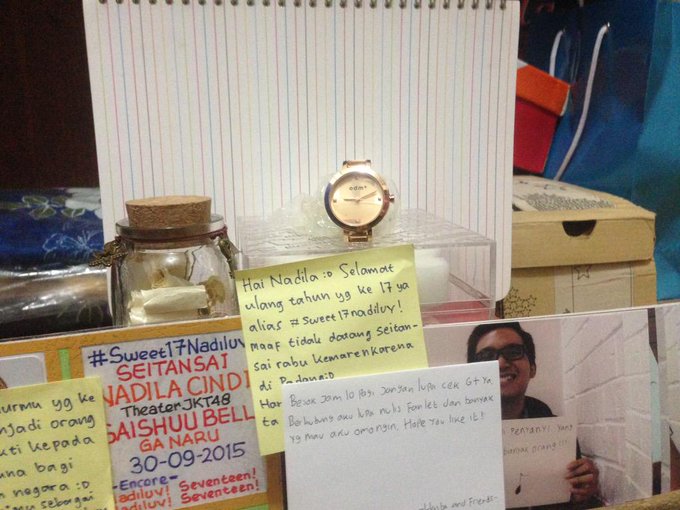 odm+
Hai Nadila :D Selamat
ulang tahun yg ke 17 ya
alias #Sweet17nadiluv!
maaf tidak datang Seitan-
sai rabu kemaren karena
di Padang :D
Har
ta
#Sweet17Nadiluv
SEITANSAI
NADILA CINDI
TheaterJKT48
SAISHUU BELL
GA NARU
30-09-2015
-Encore-
Nadiluv! Seventeen!
Nadiluv! Seventeen!
urmu yg ke
njadi orang
kti kepada
una bagi
n negara :D
mu sebagai
Besok jam 10 pagi jangan lupa cek G+ ya
Berhubung aku lupa nulis Fanlet dan banyak
yg mau aku omongin. Hope you like it!!
and Friends-
Penyanyi yang
banyak orang!!!